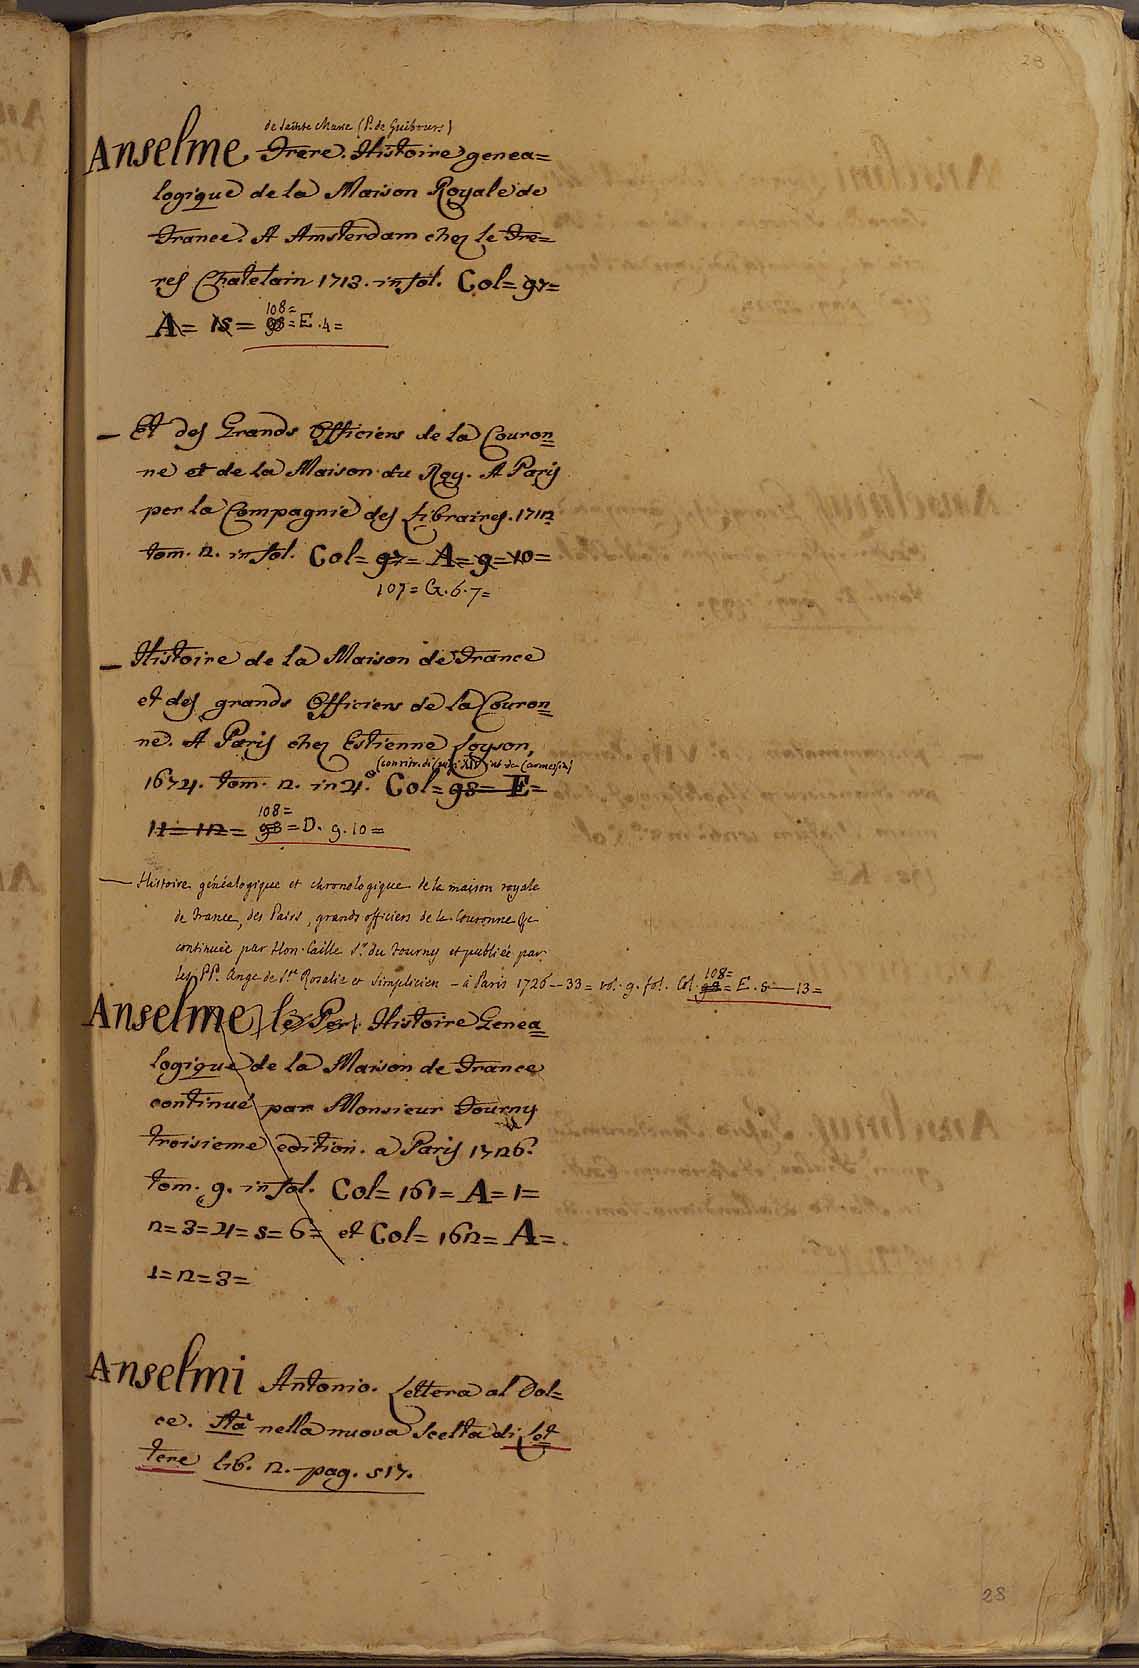 28
de Sainte Marie (P. de Guibours)
Anselme Frere. Histoire genea=
logique de la Maison Royale de
France. A Amsterdam chez le Fre=
res Chatelain 1713. in fol. Col= 97=
A= 15= 98= E. 4=
108=
— Et des Grands Officiers de la Couron=
ne et de la Maison du Roy. A Paris
per la Compagnie des Libraires. 1712
tom. 2. in fol. Col= 97= A= 9= 10=
107= G. 6. 7=
— Histoire de la Maison de France
et des grands Officiers de la Couron=
ne. A Paris chez Estienne Loyson,
1674. tom. 2. in 4.° Col= 98= E=
11= 12= 98= D. 9. 10=
108=
— Histoire généalogique et chronologique de la maison royale
de France, des Pairs, grands officiers de la Couronne &c
continuée par Hon. Caille Sr. du Fourny et publiée par
les PP. Ange de Ste Rosalie et Simplicien — à Paris 1726—33= vol. 9. fol. Col. 98= E. 5—13=
108=
Anselme le Per. Histoire Genea=
logique de la Maison de France
continué par Monsieur Fourny
troisieme edition. a Paris 1726.
tom. 9. in fol. Col= 161= A= 1=
2= 3= 4= 5= 6= et Col= 162= A=
1= 2= 3=
Anselmi Antonio. Lettera al Dol=
ce. Sta nella nuova Scelta di Let
tere lib. 2. pag. 517.
28